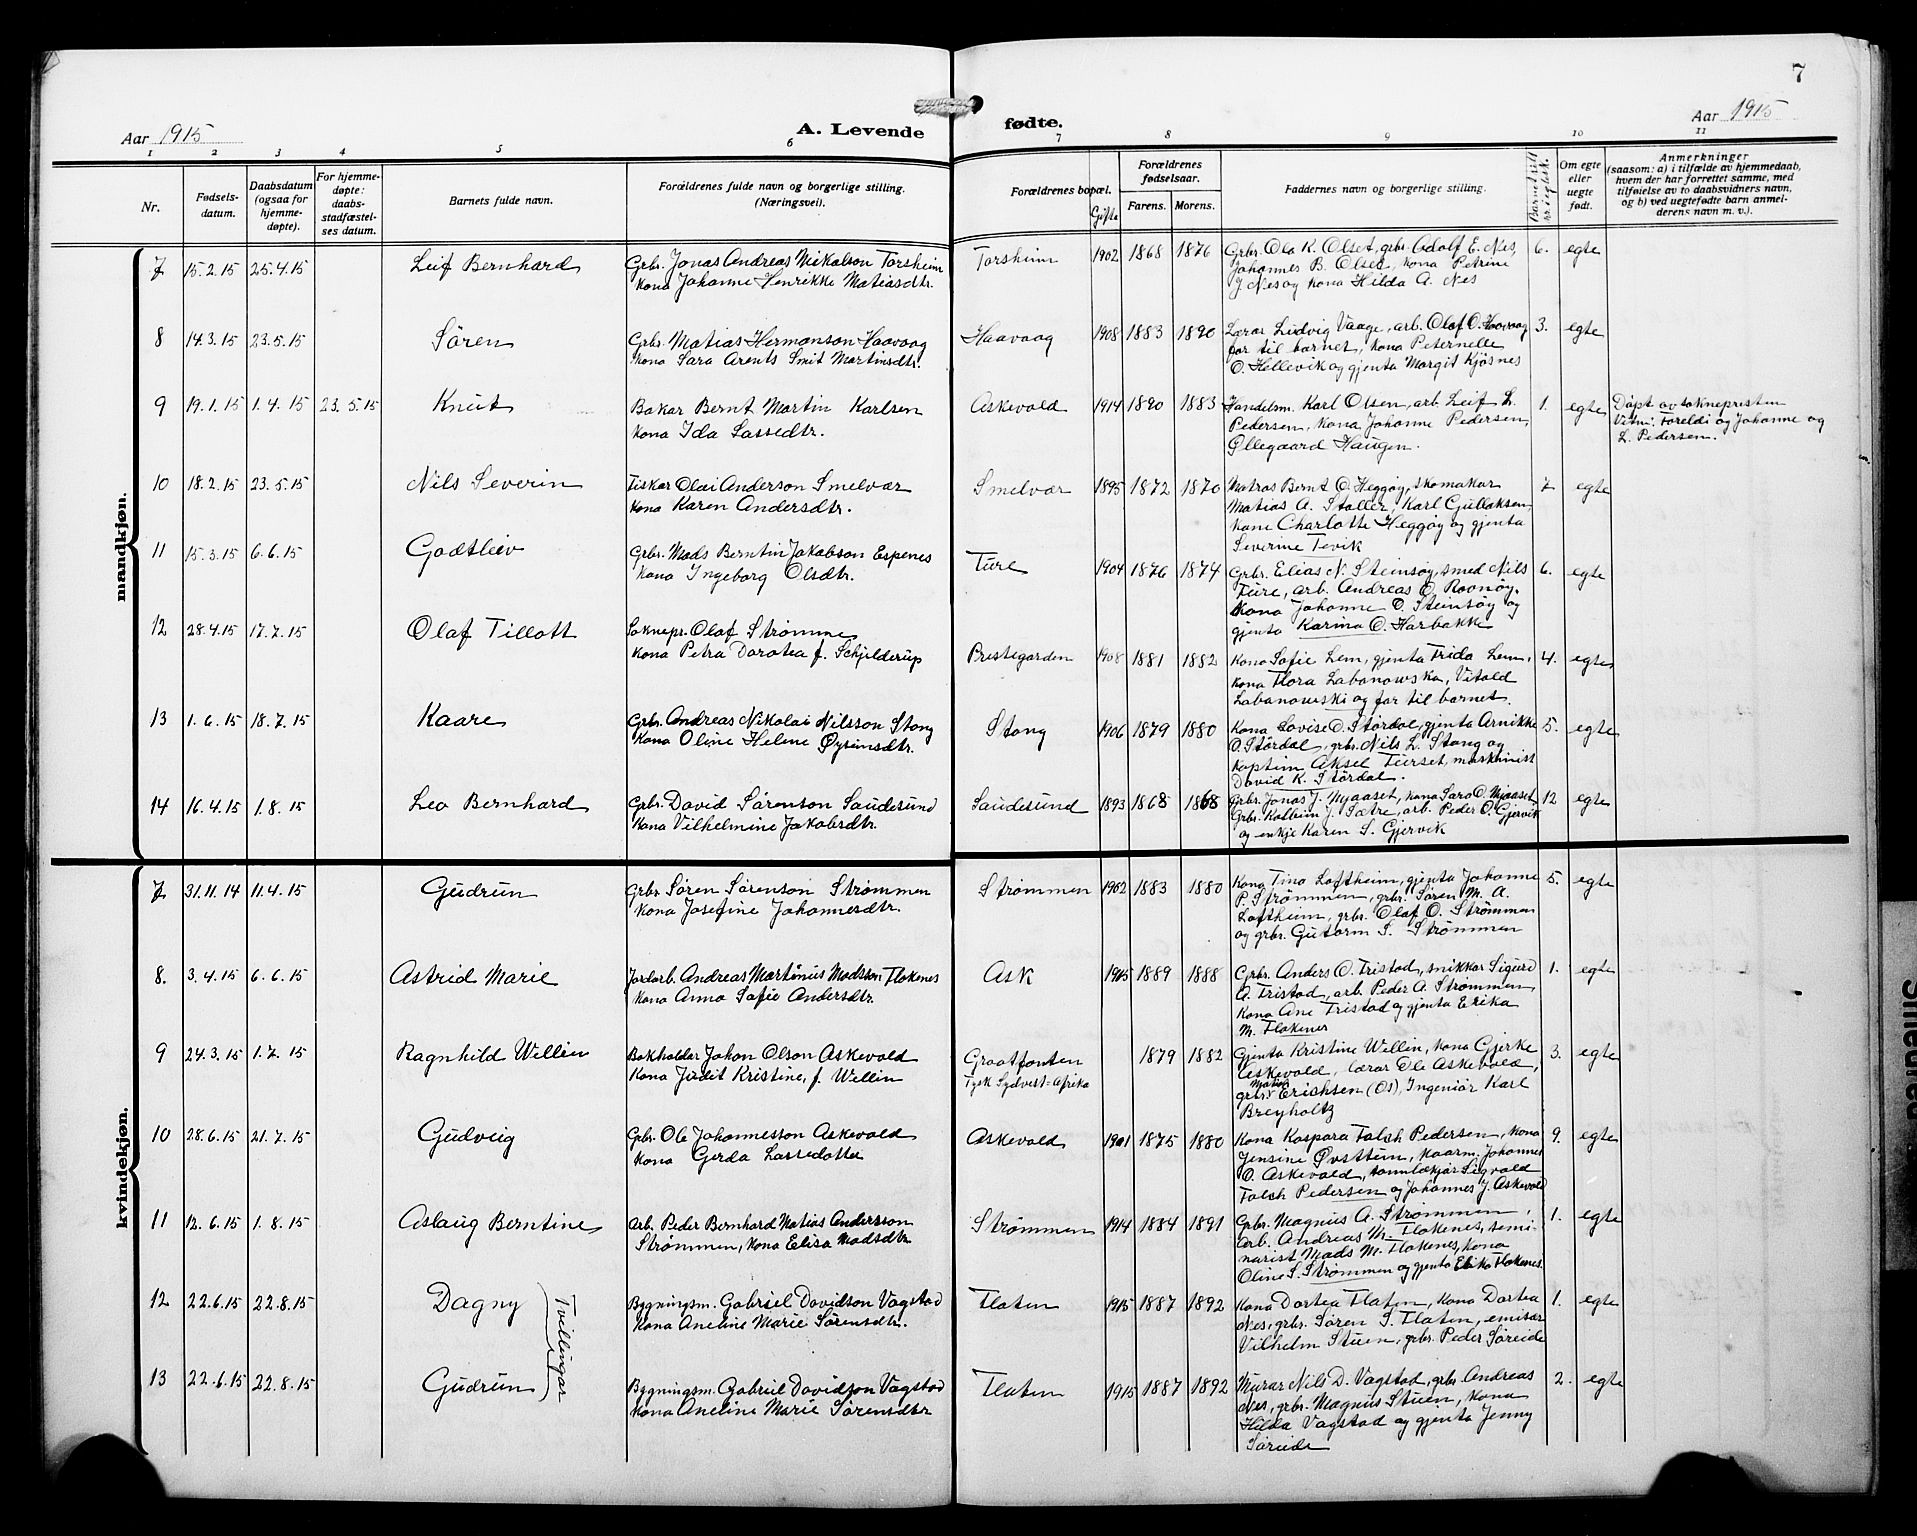 7
Aar 1915
A. Levende
fødte.
Aar 1915
1 2 3 4 5 6 7 8 9 10 11
Nr.
Fødsels-
datum.
Daabsdatum
(ogsaa for
hjemme-
døpte).
For hjemme-
døpte:
daabs-
stadfæstel-
ses datum.
Barnets fulde navn.
Forældrenes fulde navn og borgerlige stilling.
(Næringsvei).
Forældrenes bopæl.
Gifte
Forældrenes
fødselsaar.
Farens. Morens.
Faddernes navn og borgerlige stilling.
Om egte
eller
uegte
født.
Anmerkninger
(saasom: a) i tilfælde av hjemmedaab,
hvem der har forrettet samme, med
tilføielse av to daabsvidners navn,
og b) ved uegtefødte barn anmel-
derens navn m. v.).
mandkjøn.
7 15.2.15 25.4.15 Leif Bernhard
Grbr. Jonas Andreas Nikolson Torsheim
kona Johanne Henrikke Matiasdtr.
Torsheim 1902 1868 1876
Grbr. Ola K. Olset, grbr. Adolf E. Nes,
Johannes B. Olset, kona Petrine
J. Nes og kona Hilda A. Nes
6. egte
8 14.3.15 23.5.15 Søren
Grbr. Matias Hermanson Haavaag
kona Sara Arents Smit Martinsdtr.
Haavaag 1908 1883 1890
Lærar Ludvig Vaage, arb. Olaf O. Haavaag
far til barnet, kona Peternelle
O. Hellevik og gjenta Margit Kjøsnes
3. egte
9 19.1.15 1.4.15 23.5.15 Knut
Bakar Bernt Martin Karlsen
kona Ida Lassedtr.
Askevold 1914 1890 1883
Handelsm. Karl Olsen, arb. Leif L.
Pedersen, kona Johanne Pedersen,
Øllegaard Haugen.
1. egte
Døpt av soknepresten
Vitni: Foreldi og Johanne og
L. Pedersen.
10 18.2.15 23.5.15 Nils Severin
Fiskar Olai Anderson Smelvær
kona Karen Andersdtr.
Smelvær 1895 1872 1870
Matros Bernt O. Heggøy, skomakar
Matias A. Staller, Karl Gullaksen,
kone Charlotte Heggøy og gjenta
Severine Tevik
7 egte
11 15.3.15 6.6.15 Godtleiv
Grbr. Mads Berntin Jakobson Espenes
kona Ingeborg Olsdtr.
Fure 1904 1876 1874
Grbr. Elias N. Steinsøy, smed Nils
Fure, arb. Andreas O.
kona Johanne O. Steinsøy og
gjenta Karina O. Harbakke
6. egte
12 28.4.15 17.7.15 Olaf Tillott
Soknepr. Olaf Strømme
kona Petra Dorotea f. Schjelderup
Prestegarden 1908 1881 1882
Kona Sofie Lem, gjenta Frida Lem,
kona Flora Labanowska, Vitold
Labanowski og far til barnet.
4. egte
13 1.6.15 18.7.15 Kaare
Grbr. Andreas Nikolai Nilsson Stong
kona Oline Helene Øysinsdtr.
Stong 1906 1879 1880
Kona Lovise O. Størdal, gjenta Arnikke
O. Størdal, grbr. Nils L. Stong og
Aksel Furset, maskinist
David K. Størdal.
5. egte
14 16.4.15 1.8.15 Leo Bernhard
Grbr. David Sørenson Saudesund
kona Vilhelmine Jakobsdtr.
Saudesund 1893 1868 1868
Grbr. Jonas J. Myaaset, kona Sara O. Myaaset
Grbr. Kolbein J. Sætre, arb. Peder O. Gjervik
og enkje Karen S. Gjervik
12 egte
kvindekjøn.
7 31.11.14 11.4.15 Gudrun
Grbr Søren Sørenson Strømmen
kona Josefine Johannesdtr.
Strømmen 1902 1883 1880
Kona Tina Loftheim, gjenta Johanne
P. Strømmen, grbr. Søren M. A.
Loftheim, grbr. Olaf O. Strømmen
og grbr. Gutorm S. Strømmen
5. egte
8. 3.4.15 6.6.15 Astrid Marie
Jordarb. Andreas Martinus Madsson Flokenes
kona Anna Sofie Andersdtr.
Ask 1915 1889 1888
Grbr. Anders O. Tristad, snikkar Sigurd
A. Tristad, arb. Peder A. Strømmen,
kona Ane Tristad og gjenta Erika
M. Flokenes
1. egte
9 24.3.15 1.7.15 Ragnhild Wellin
Bokholdar Johan Olson Askevold
kona Judit Kristine, f. Wellin
Grootfonten
Tysk Sydvest-Afrika
1879 1882
Gjenta Kristine Wellin, kona Gjerke
Askevold, lærar Ole Askevold,
grbr. Matias Erichsen (Os), Ingeniør Karl
Breyholtz
3. egte
10 28.6.15 21.7.15 Gudveig
Grbr. Ole Johannesson Askevold
kona Gerda Lassedotter
Askevold 1901 1875 1880
Kona Kaspara Falch Pedersen, kona
Jensine Øvstten, kaarm. Johannes
O. Askevold, Sigvald
Falch Pedersen og Johannes J. Askevold
9. egte
11 12.6.15 1.8.15 Aslaug Berntine
Arb. Peder Bernhard Matias Andersson
Strømmen, kona Elisa Madsdtr
Strømmen 1914 1884 1891
Grbr. Magnus A. Strømmen,
arb. Andreas M. Flokenes, semi-
narist Mads M. Flokenes, kona
Oline S. Strømmen og gjenta Erika Flokenes.
1. egte
12 22.6.15 22.8.15 Dagny
Tvillingar
Bygningsm. Gabriel Davidson Vagstad
kona Aneline Marie Sørensdtr.
Flaten 1915 1887 1892
Kona Dortea Flaten, kona Dortea
Nes, grbr. Søren S. Flaten, emisær
Vilhelm Stuen, grbr. Peder Søreide
1. egte
13 22.6.15 22.8.15 Gudrun
Bygningsm. Gabriel Davidson Vagstad
kona Aneline Marie Sørensdtr
Flaten 1915 1887 1892
Murar Nils D. Vagstad, grbr. Andreas
Nes, grbr. Magnus Stuen, kona
Hilda Vagstad og gjenta Jenny
Søreide
2. egte